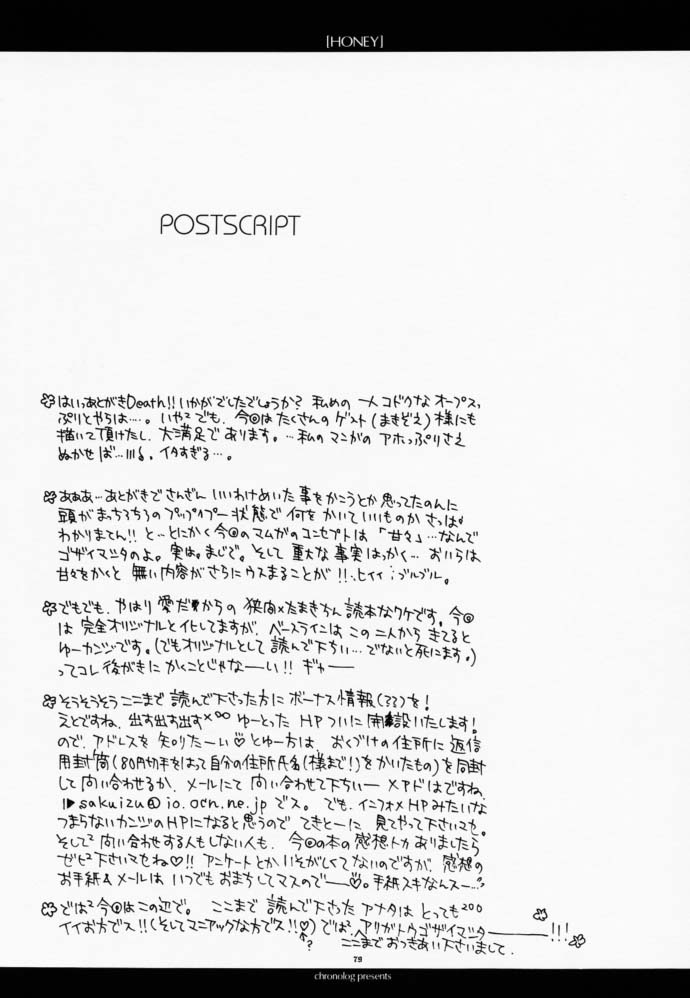 [HONEY]
POSTSCRIPT
はいっあとがきDeath!! いかがでしたでしょうか? 私めの 一人コドクなオープス、
ぷりとやらは…。いや²でも、今回はたくさんのゲスト(まきぞえ)様にも
描いて頂けたし、大満足であります。…私のマンガのアホっぷりさえ
ぬかせば…、イタすぎる…。
あぁあ…あとがきでさんざん いいわけめいた事をかこうとか思ってたのに
頭がまっちろちろのプップイプー状態で何をかいていいものかさっぱり
わかりまてん!! と…とにかく今回のマムがのコンセプトは「甘々」…なんで
ゴザイマツタのよ。実は。まじで。そして 重大な事実はっかく… おいらは
甘々をかくと 無い内容がさらにウスまることが!!ヒイィ ブルブル。
でもでも、やはり 愛だからの 狭向×たまきちん 読本なワケです。今回
は 完全オリジナルと化してますが、ベースラインは この二人から きてると
ゆーカンジです。(でもオリジナルとして 読んで下ちぃ…でないと死にます。)
ってコレ後がきに かくことじゃなーい!! ギャー
そうそうそう ここまで 読んで下さった方に ボーナス情報(33)を!
えとですね、出す出す出す×∞ ゆーとった HPついに 開設いたします!
ので、アドレスを 知りたーい♡とゆー方は、おくづけの住所に 返信
用封筒(80円切手をはって自分の住所氏名(様まで!)をかいたもの)を同封
して 問い合わせるか、メールにて 問い合わせて下ちぃー メアドはですね、
▶sakuizu@io.ocn.ne.jp でス。 でも、インフォメHPみたいな
つまらないカンジのHPになると思うので てきとーに 見てやって下さいマセ。
そして² 問い合わせする人もしない人も、今回の本の感想トカ ありましたら
ゼヒ²下さいマセね♡!! アンケートとか いそがしくてないのですが、感想の
お手紙&メールは いつでもおまちしてマスのでー♡。手紙スキなんスー…
では² 今回はこの辺で。 ここまで 読んで下さった アナタは とっても²⁰⁰
イイお方でス!!(そしてマニアックな方でス!!♡) では、アリガトウゴザイマシター!!!
?
ここまでおつきあい下さいまして。
79
chronolog presents